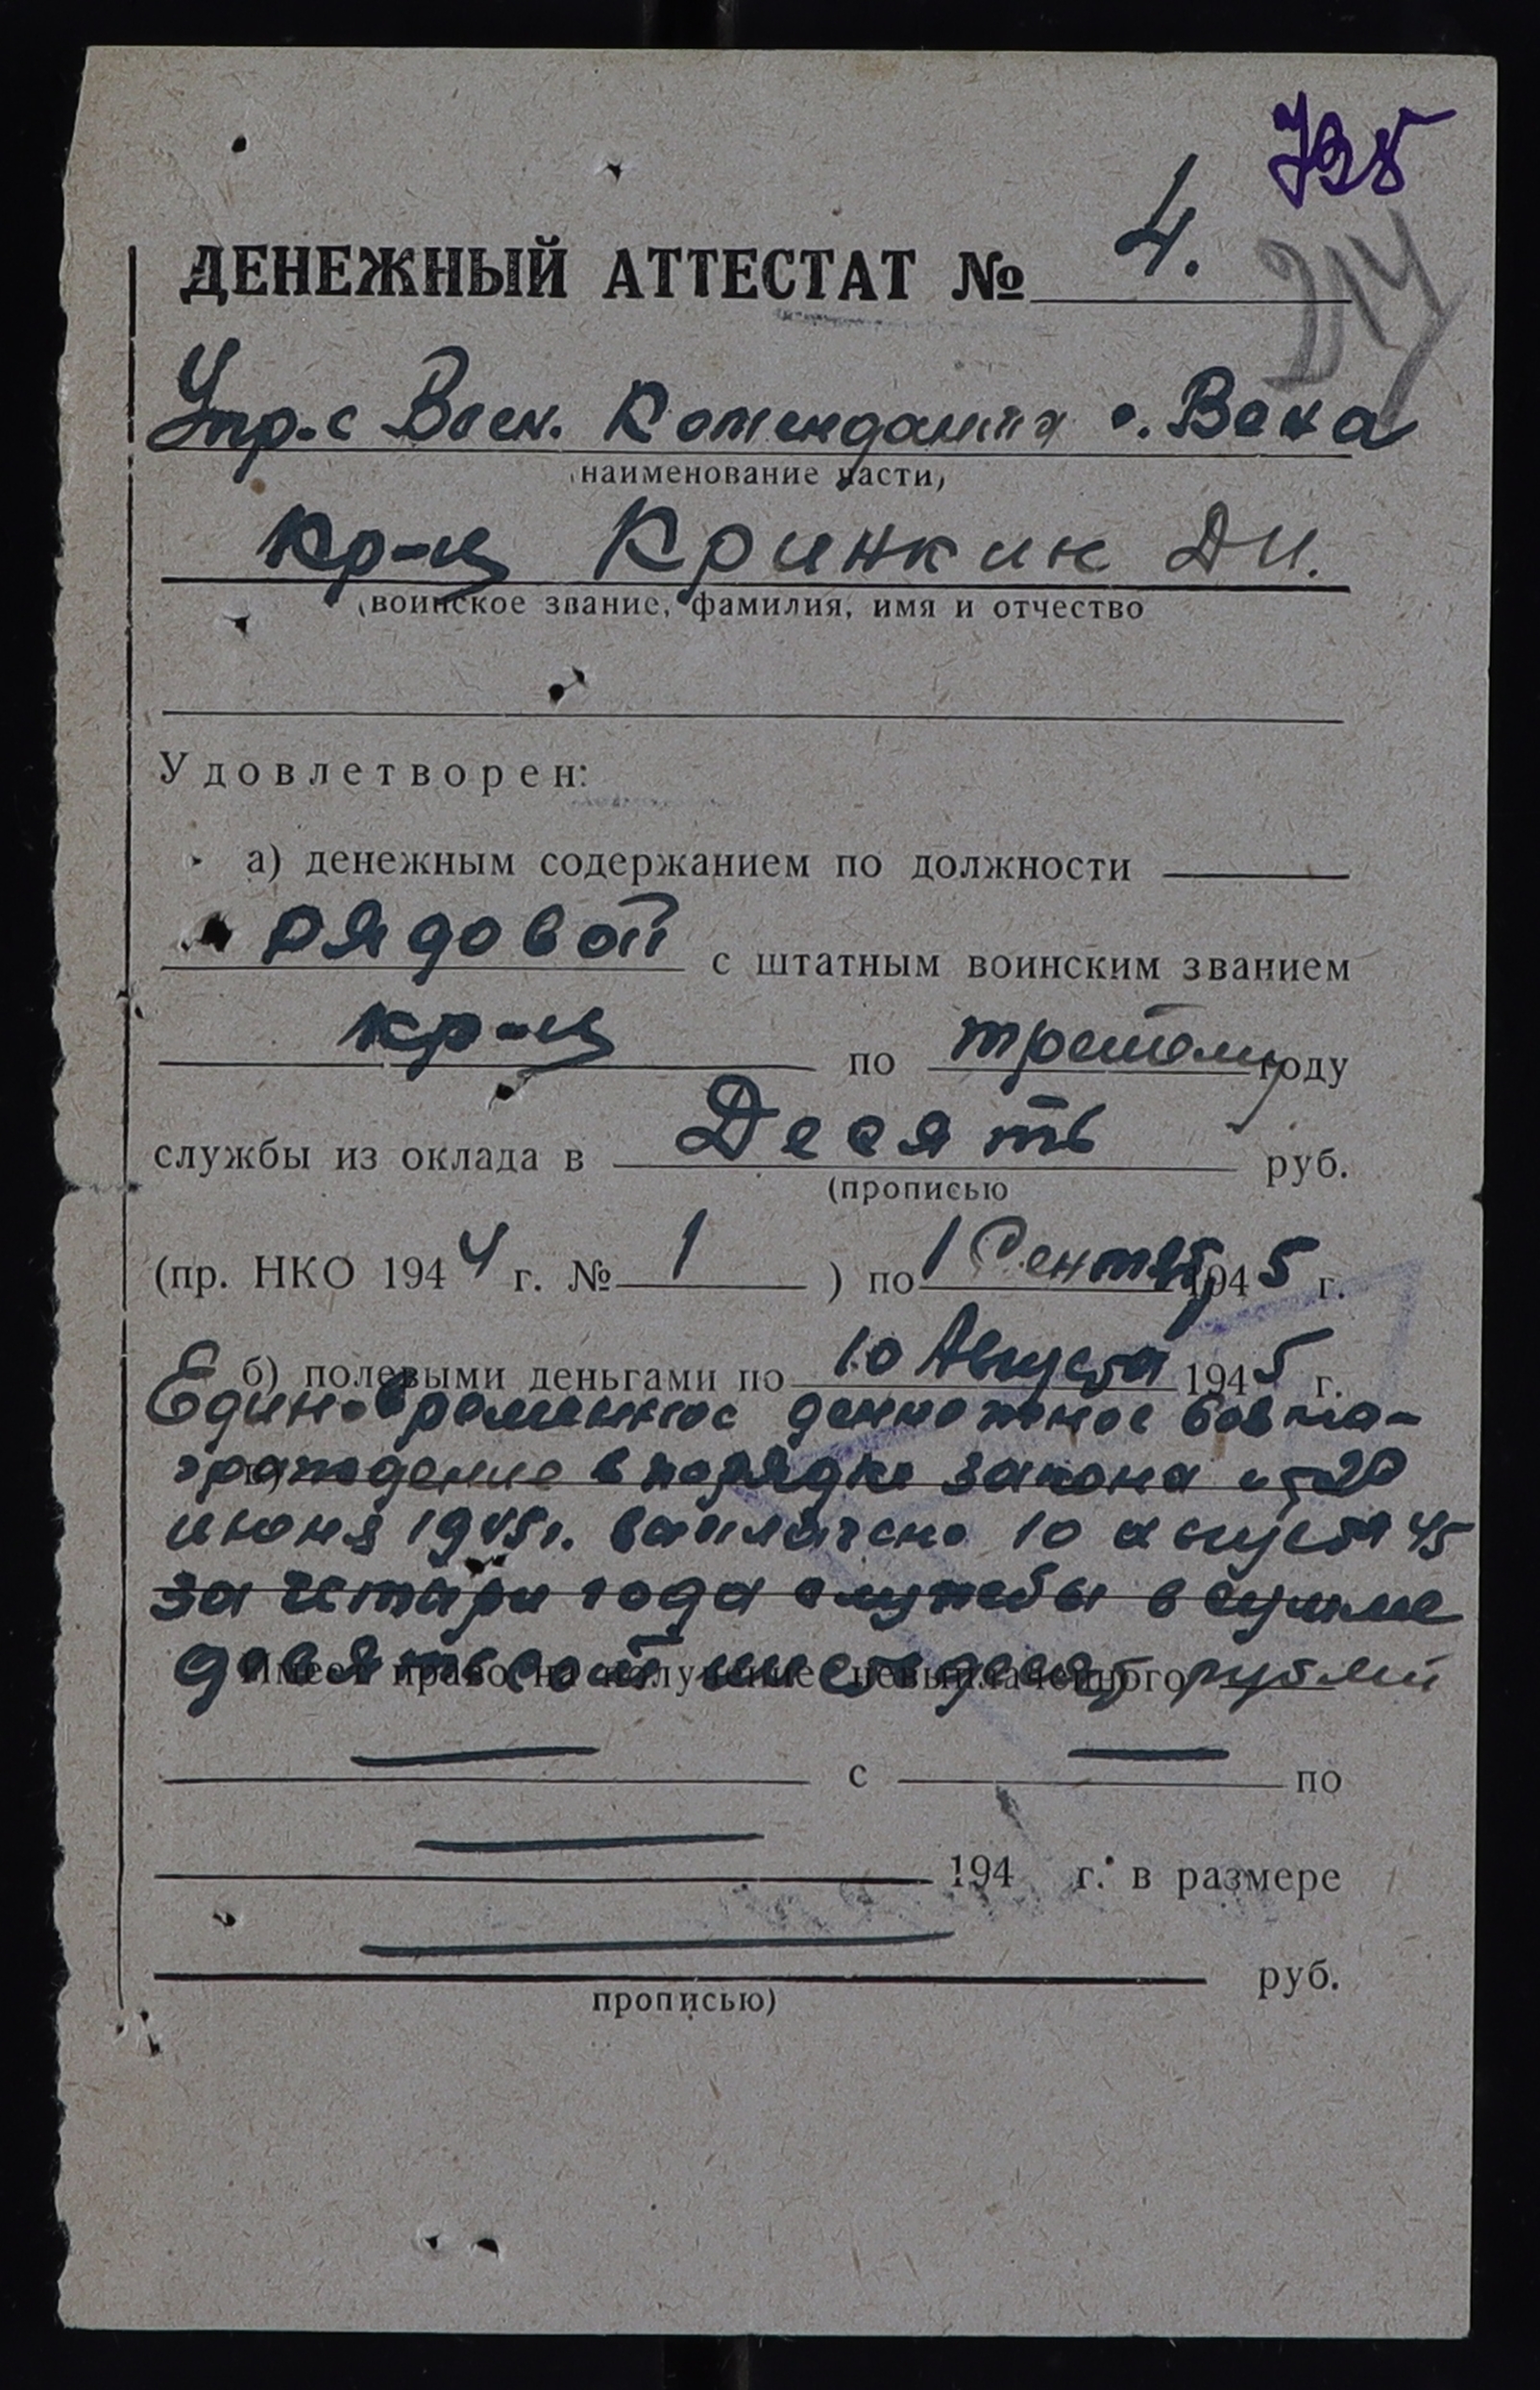 735
217
ДЕНЕЖНЫЙ АТТЕСТАТ № 4.
Упр-е Воен. Комендатия г. Вена
наименование части)
кр-ц Кринкин Д И.
(воинское звание, фамилия, имя и отчество
Удовлетворен:
а) денежным содержанием по должности
рядовой с штатным воинским званием
кр-ц по третему году
службы из оклада в Десять руб.
(прописью
(пр. НКО 1944 г. № 1 ) по 1 Сентяб 1945 г.
б) полевыми деньгами по 10 Августа 1945 г.
Единовременное денежное возна-
граждение в порядке закона от 20
июня 1945г. выплачено 10 августа 45
за четыри года службы в сумме
Имеет право на получение невыплаченного
девятьсот шестьдесят рублей
с по
194 г. в размере
руб.
прописью)